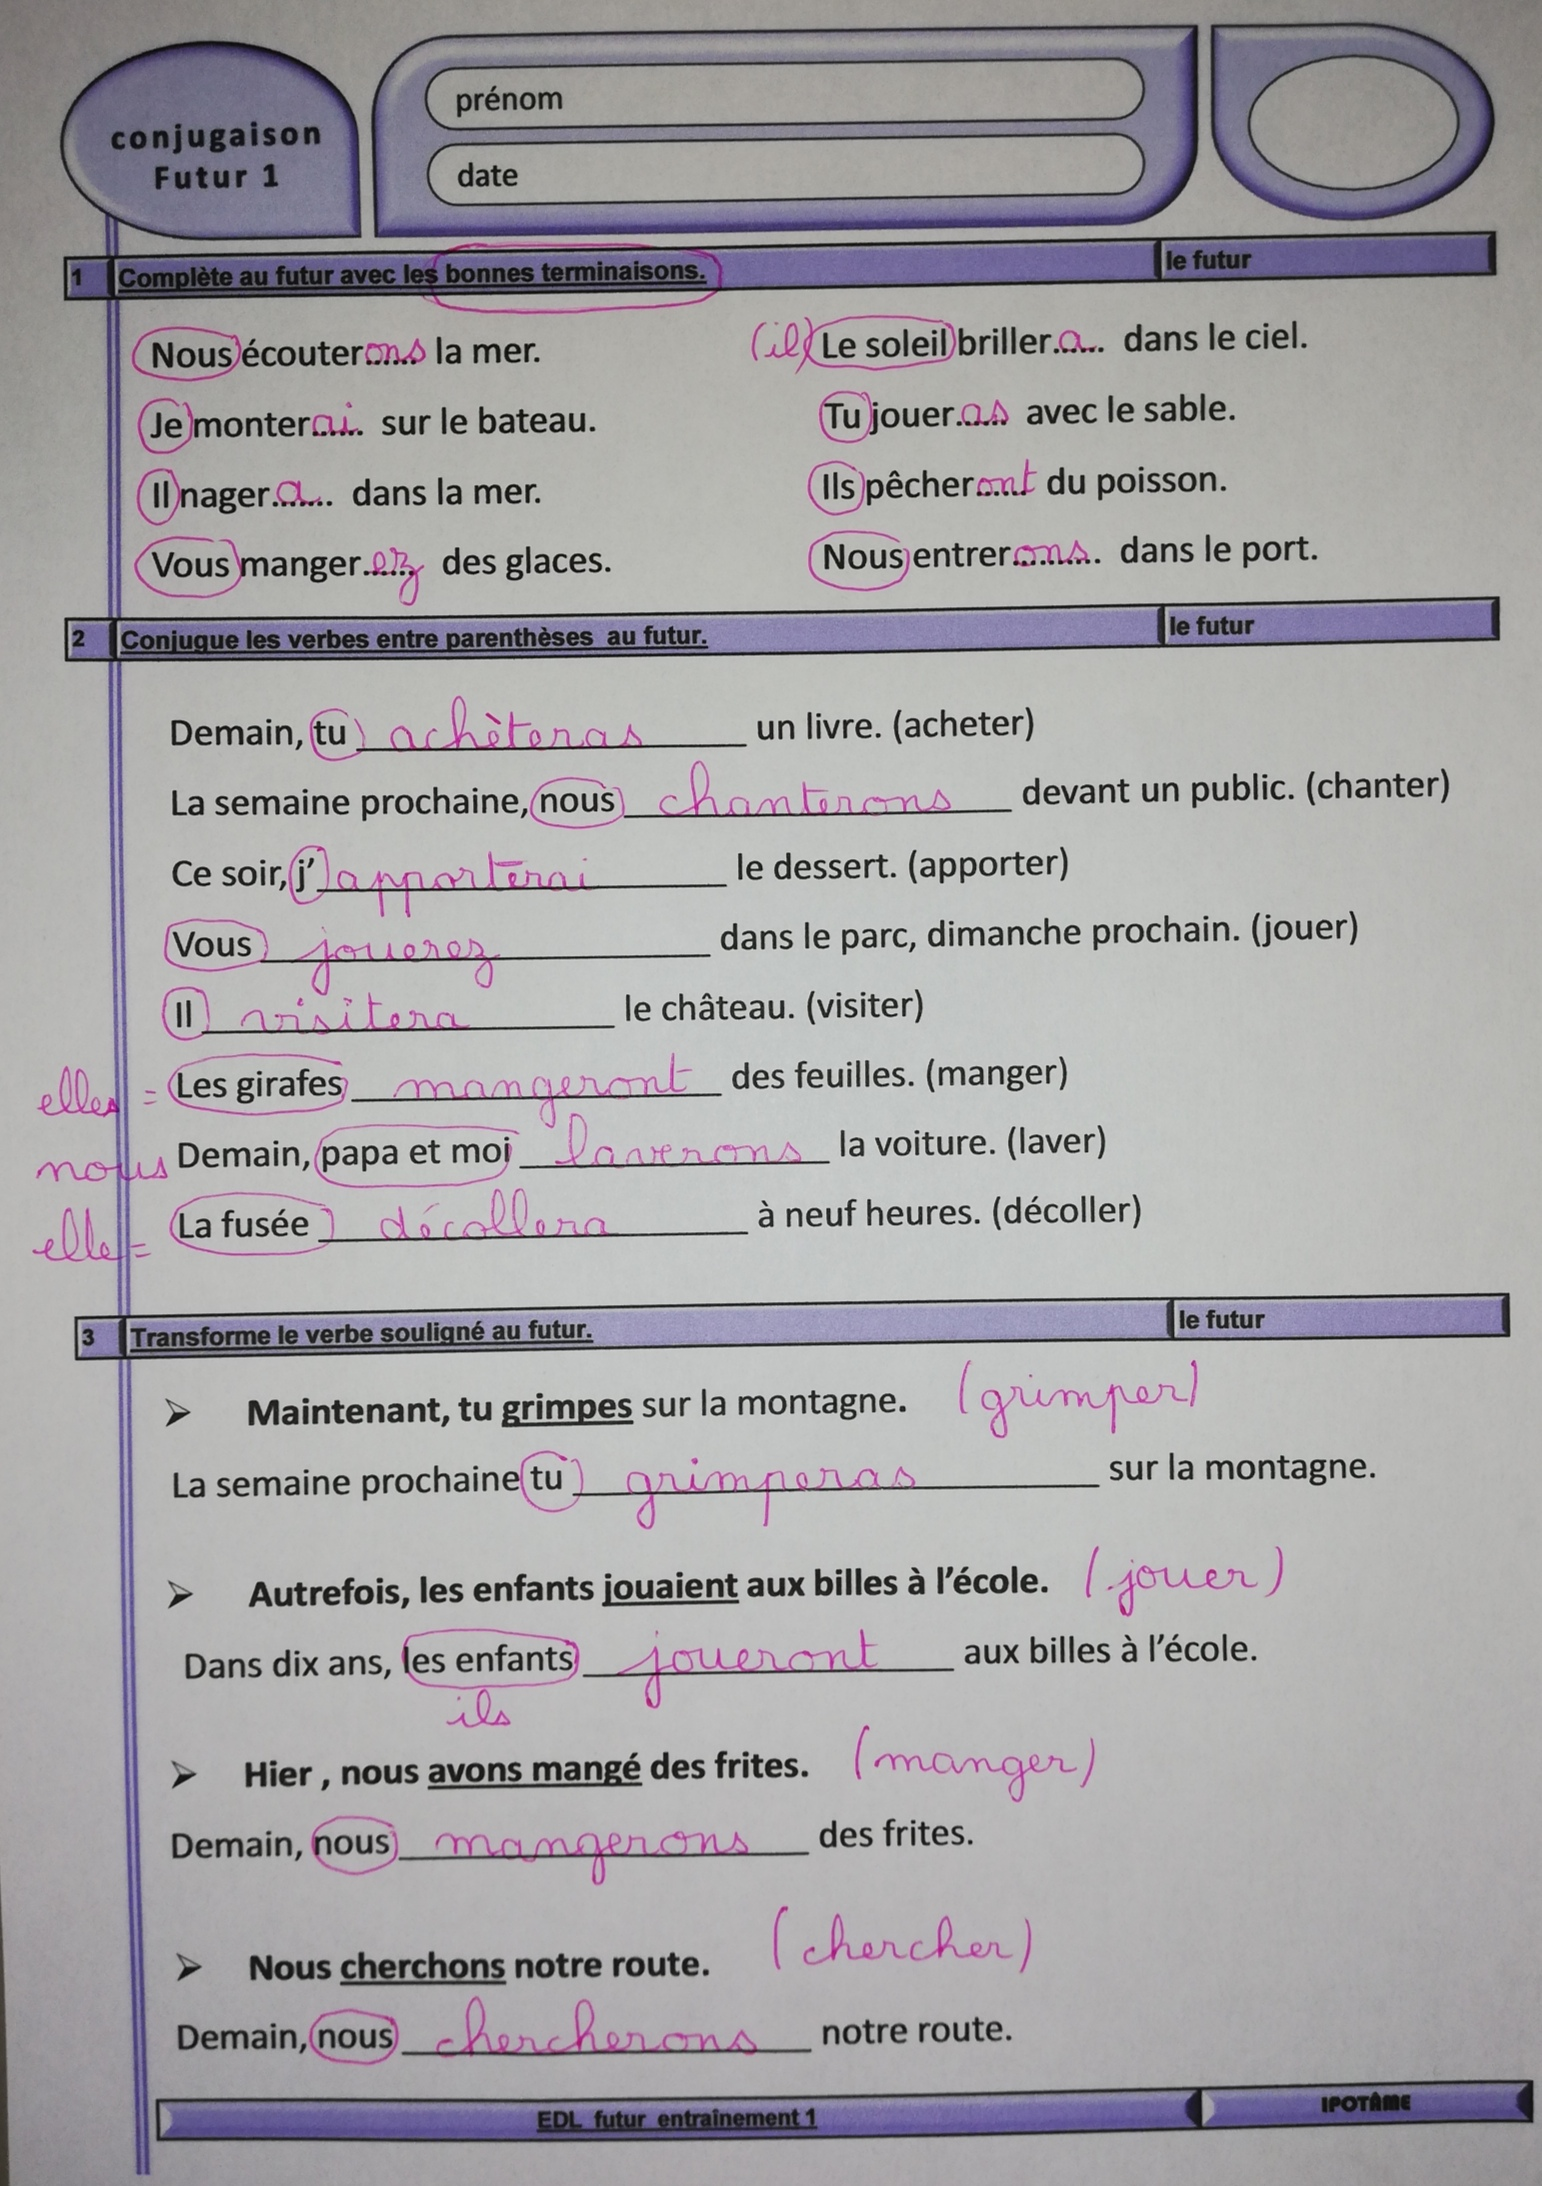 conjugaison
Futur 1
prénom
date
1 Complète au futur avec les bonnes terminaisons. le futur
Nous écouterons la mer. (il) Le soleil brillera dans le ciel.
Je monterai sur le bateau. Tu joueras avec le sable.
Il nagera dans la mer. Ils pêcheront du poisson.
Vous mangerez des glaces. Nous entrerons dans le port.
2 Conjugue les verbes entre parenthèses au futur. le futur
Demain, tu achèteras un livre. (acheter)
La semaine prochaine, nous chanterons devant un public. (chanter)
Ce soir, j' apporterai le dessert. (apporter)
Vous jouerez dans le parc, dimanche prochain. (jouer)
Il visitera le château. (visiter)
elles = Les girafes mangeront des feuilles. (manger)
nous Demain, papa et moi laverons la voiture. (laver)
elle = La fusée décollera à neuf heures. (décoller)
3 Transforme le verbe souligné au futur. le futur
➢ Maintenant, tu grimpes sur la montagne. (grimper)
La semaine prochaine tu grimperas sur la montagne.
➢ Autrefois, les enfants jouaient aux billes à l'école. (jouer)
Dans dix ans, les enfants joueront aux billes à l'école.
ils
➢ Hier , nous avons mangé des frites. (manger)
Demain, nous mangerons des frites.
➢ Nous cherchons notre route. (chercher)
Demain, nous chercherons notre route.
EDL futur entraînement 1 IPOTÂME